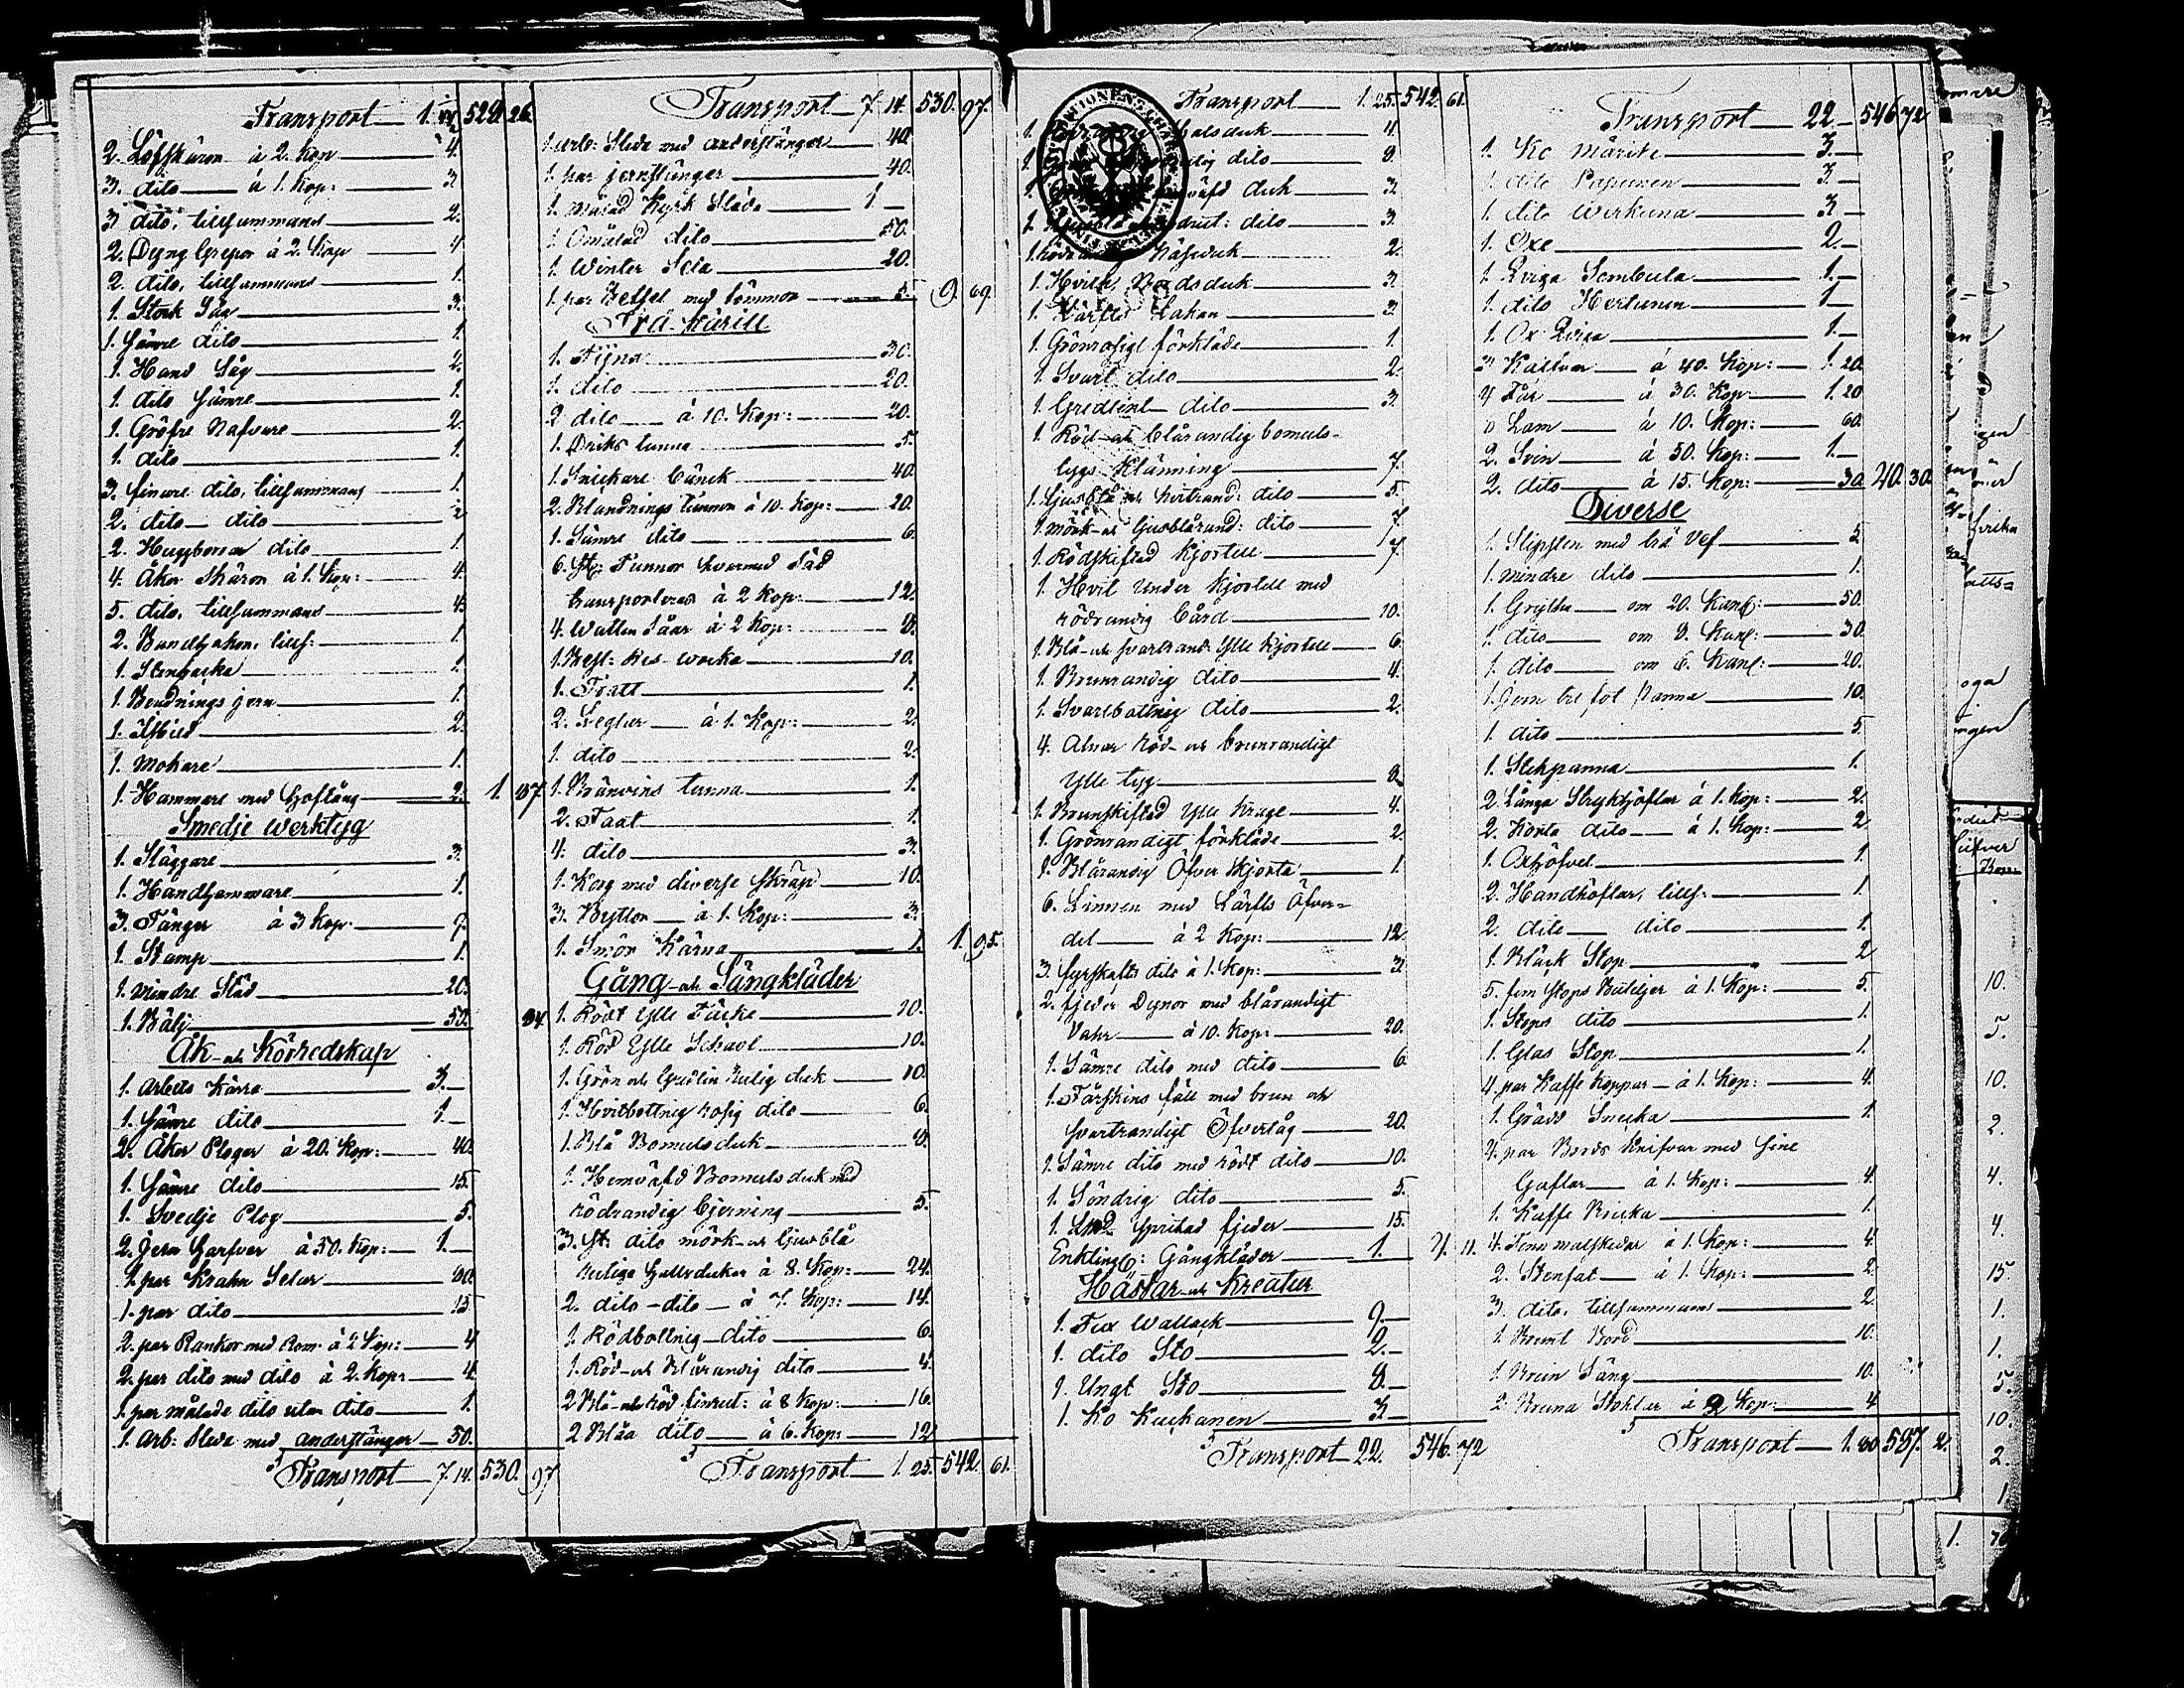 Transport 1. 529. 26.
2. Löfskäror à 2. Kop 4.
3. dito à 1. Kop: 3
3 dito, tillsummans 2.
2. Dyng Grepor à 2. Kop 4
2. dito, tillsummans 1.
1. Stock Såg 3.
1. Sämre dito 1.
1. Hand Såg 2.
1. dito Sämre 1.
1. Gröfre Nafvare 2.
1. dito 1.
3. finare dito, tillsummans 1
2. dito dito 2
2. Huggborrar dito 1.
4. Åker Skäror à 1. Kop: 4.
5. dito, tillsummans 4.
2. Bandhakor, tills: 1
1. Stenhacka 1.
1. Bendnings jern 1.
1. 2.
1. Mokare 1
1. Hammare med Hoftång 2. 1. 87.
Smedje Werktyg
1. Släggare 3.
1. Handhammare 1.
3. Tänger à 3 Kop: 9.
1. Stamp 1.
1. Mindre Städ 20.
1. Bälj 50. 84.
Åk- och Körredskap
1. Arbets Kärra 3.
1. Sämre dito 1.
2. Åker Plogar à 20. Kop: 40.
1. Sämre dito 15.
1. Svedje Plog 5.
2. Jern Harfvar à 50. Kop: 1.
1. par Krahn Selar 80.
1. par dito 15
2. par Rankor med Rom: à 2 Kop: 4
2. par dito med dito à 2. Kop: 4
1. par målade dito utan dito 1.
1. Arb: Släde med anderstänger 50.
Transport 7. 14. 530. 97
Transport 7. 14. 530. 97.
1. arb: Släde med anderstänger 40.
1. par jernstänger 40.
1. Målad Kyrk Släda 1
1. Omålad dito 50.
1. Winter Sela 20.
1. par Betsel med tömmor 5. 9. 69.
Trä-Kärill
1. Tijna 30.
1. dito 20.
2 dito à 10. Kop: 20.
1. Dricks tunna 5.
1. Snickare bänck 40.
2. Blandnings tunnor à 10. Kop: 20.
1. Sämre dito 6.
6. St: Tunnor hvarmed Säd
transporteras à 2 Kop: 12.
4. Watten Såar à 2 Kop: 8.
1. Besl: Res wacka 10.
1. Tratt 1.
2. Seglar à 1. Kop: 2.
1. dito 2.
1. Bränvins tunna 1.
2. Faat 1.
4. dito 3.
1. Korg med diverse Skräp 10.
3. Byttor à 1. Kop: 3.
1. Smör Kärna 1. 1. 95.
Gång- och Sängkläder
1. Rödt Ylle Täcke 10.
1. Röd Ylle Schavl 10.
1. Grön och Gredlin Rutig duk 10.
1. Hvitbottnig rosig dito 6.
1. Blå Bomulsduk 8.
1. Hemväfd Bomulsduk med
rödrandig bjerning 5.
3. St: dito mörk- och ljusblå
rutiga Halsdukar à 8. Kop: 24.
2. dito dito à 7. Kop: 14.
1. Rödbottnig dito 6.
1. Röd- och Blårandig dito 4.
2 Blå- och Röd finrut: à 8 Kop: 16.
2 Blåa dito à 6. Kop: 12
Transport 1. 25. 542. 61.
Transport 1. 25. 542. 61.
1. Halsduk 4.
1. dito 8.
1. duk 3.
1. dito 3.
1. Näsduk 2.
1. Hvith Bordsduk 3.
1. Lärfts Lakan 3.
1. Grönrosigt förkläde 1.
1. Svart dito 2.
1. Gredlint dito 3
1. Röd- och blårandig bomuls-
tygs Klänning 7
1. Ljusblå och hvitrand: dito 5.
1. Mörk- och ljusblårand: dito 7
1. Rödskiftad Kjortell 7.
1. Hvit Under Kjortell med
rödrandig bård 10.
1. Blå- och Svartrand: Ylle Kjortell 6.
1. Brunrandig dito 4.
1. Svartbottnig dito 2.
4. Alnar Röd- och brunrandigt
Ylle tyg 8
1. Brunskiftad Ylle Krage 4.
1. Grönrandigt förkläde 2.
1. Blårandig Öfver Skjorta 1.
6. Linnen med Lärfts Öfver-
del à 2 Kop: 12.
3. fyrskafts dito à 1. Kop: 3.
2. fjeder Dynor med blårandigt
Vahr à 10. Kop: 20.
1. Sämre dito med dito 6.
1. Fårskins fäll med brun och
Svartrandigt Öfvertåg 20.
1. Sämre dito med rödt dito 10.
1. Söndrig dito 5.
1. spritad fjeder 15.
Enkling: Gångkläder 1. 4. 11.
Hästar- och Kreatur
1. Fux Wallack 9.
1. dito Sto 2.
1. Ungt Sto 8.
1. Ko Kuckanen 3.
Transport 22. 546. 72
Transport 22 546 72
1. Ko Märike 3.
1. dito Papunen 3.
1. dito Werkuna 3.
1. Oxe 2.
1. Qviga Sembula 1.
1. dito Hertunen 1.
1. Ox Qviga 1.
3 Kalfvar à 40. Kop: 1. 20.
4 Får à 30. Kop 1. 20
6 Lam à 10. Kop: 60.
2. Svin à 50. Kop: 1.
2. dito à 15. Kop: 30. 40. 30.
Diverse
1. Slipsten med trä Vef 5.
1. mindre dito 1.
1. Gryta om 20. Kan: 50.
1. dito om 8. Kan: 30.
1. dito om 6. Kan: 20.
1. Jern tre fot Panna 10.
1. dito 5.
1. Stekpanna 1.
2. Långa Strykhöflar à 1. Kop: 2.
2. Korta dito à 1. Kop: 2
1. Oxhöfvel 1
2. Handhöflar, tills: 1.
2. dito dito 1.
1. Bläck Stop 2
5. fem Stops Buteljer à 1. Kop: 5.
1. Stops dito 1.
1. Glas Stop 1.
4. par Kaffe Koppar à 1. Kop: 4.
1. Grädd Snecka 1.
4. par Bords Knifvar med sine
Gaflar à 1. Kop: 4.
1. Kaffe Bricka 1.
4. Tenn matskedar à 1. Kop: 4.
2. Stenfat à 1. Kop: 2.
3. dito, tillsummans 2
1. Brunt Bord 10.
1. Brun Säng 10.
2. Bruna Stohlar à 2 Kop: 4
Transport 1. 80 587. 2.